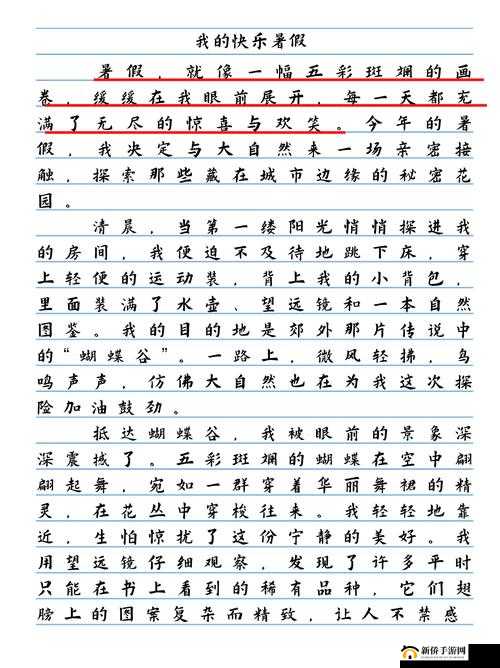 我的快乐暑假
暑假，就像一幅五彩斑斓的画
卷，缓缓在我眼前展开，每一天都充
满了无尽的惊喜与欢笑。今年的暑
假，我决定与大自然来一场亲密接
触，探索那些藏在城市边缘的秘密花
园。
清晨，当第一缕阳光悄悄探进我
的房间，我便迫不及待地跳下床，穿
上轻便的运动装，背上我的小背包，
里面装满了水壶、望远镜和一本自然
图鉴。我的目的地是郊外那片传说中
的“蝴蝶谷”。一路上，微风轻拂，鸟
鸣声声，仿佛大自然也在为我这次探
险加油鼓劲。
抵达蝴蝶谷，我被眼前的景象深
深震撼了。五彩斑斓的蝴蝶在空中翩
翩起舞，宛如一群穿着华丽舞裙的精
灵，在花丛中穿梭往来。我轻轻地靠
近，生怕惊扰了这份宁静的美好。我
用望远镜仔细观察，发现了许多平时
只能在书上看到的稀有品种，它们翅
膀上的图案复杂而精致，让人不禁感
新侨手游网